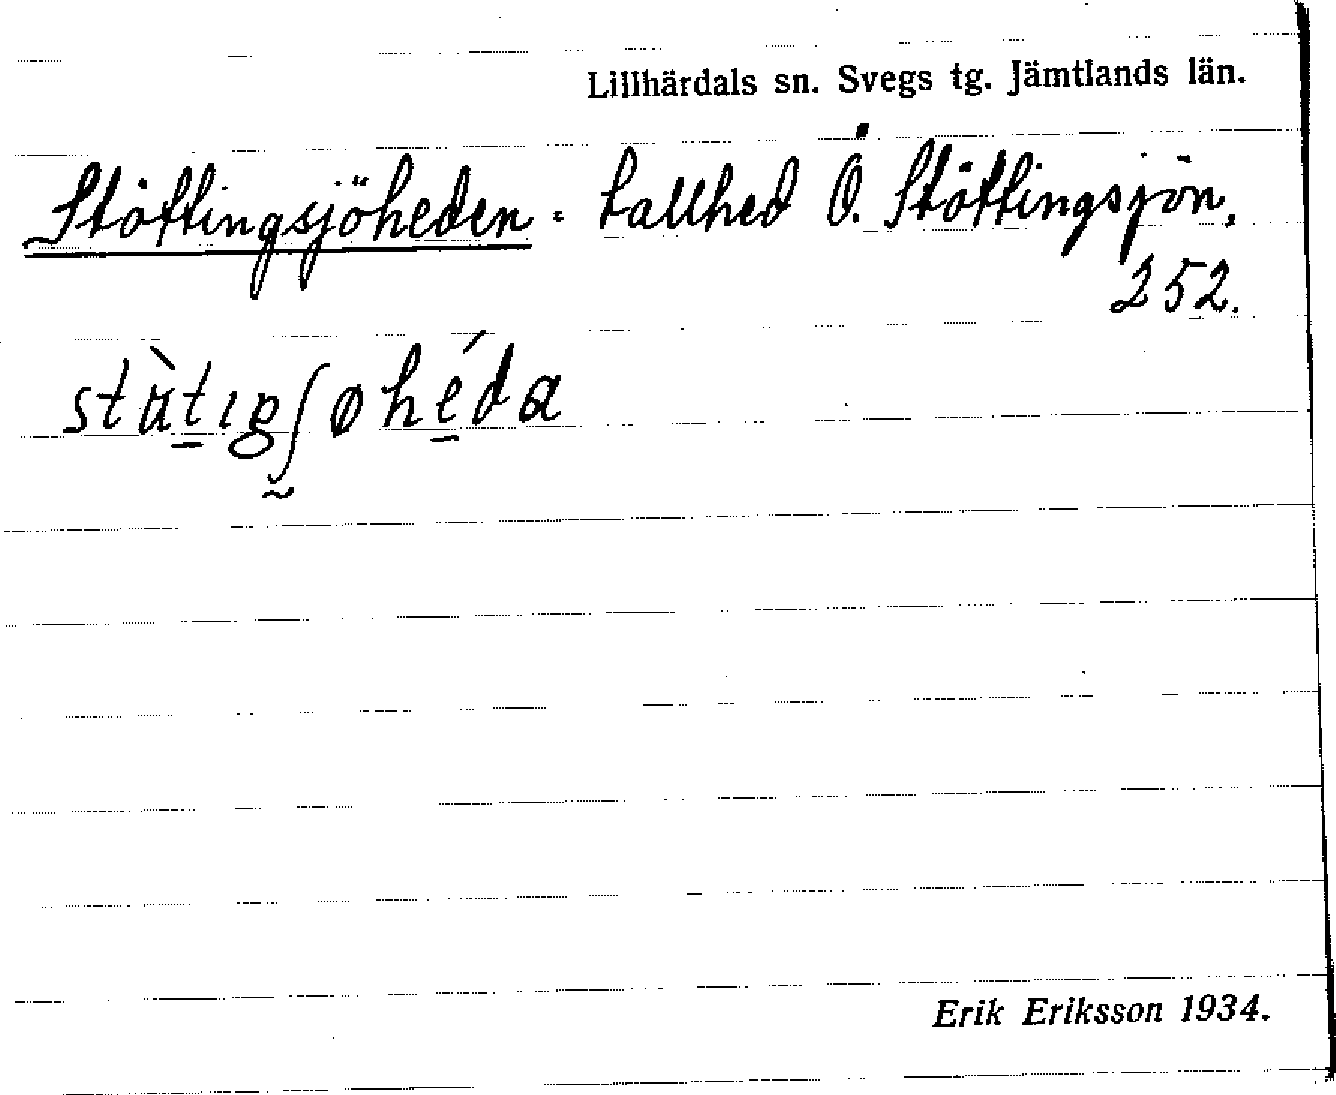 Lillhärdals sn. Svegs tg. Jämtlands län.
Stöttingsjöheden = tallhed Ö. Stöttingsjön,
252.
Erik Eriksson 1934.